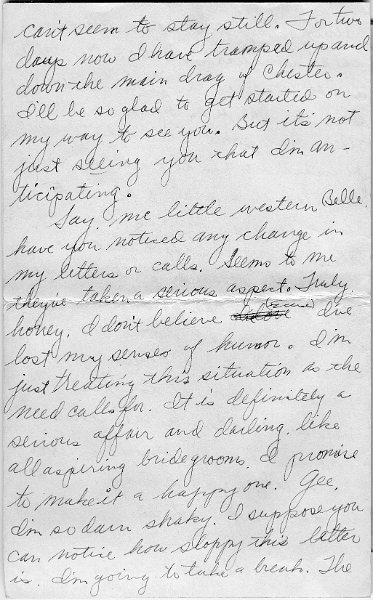 can't seem to stay still. For two
days now I have tramped up and
down the main drag of Chester.
I'll be so glad to get started on
my way to see you. But it's not
just seeing you that I'm an-
ticipating.
Say, me little western Belle,
have you noticed any change in
my letters or calls. Seems to me
they've taken a serious aspect. Truly
honey, I don't believe I've
lost my senses of humor. I'm
just treating this situation as the
need calls for. It is definitely a
serious affair and darling, like
all aspiring bridegrooms, I promise
to make it a happy one. Gee,
I'm so darn shaky. I suppose you
can notice how sloppy this letter
is. I'm going to take a break. The